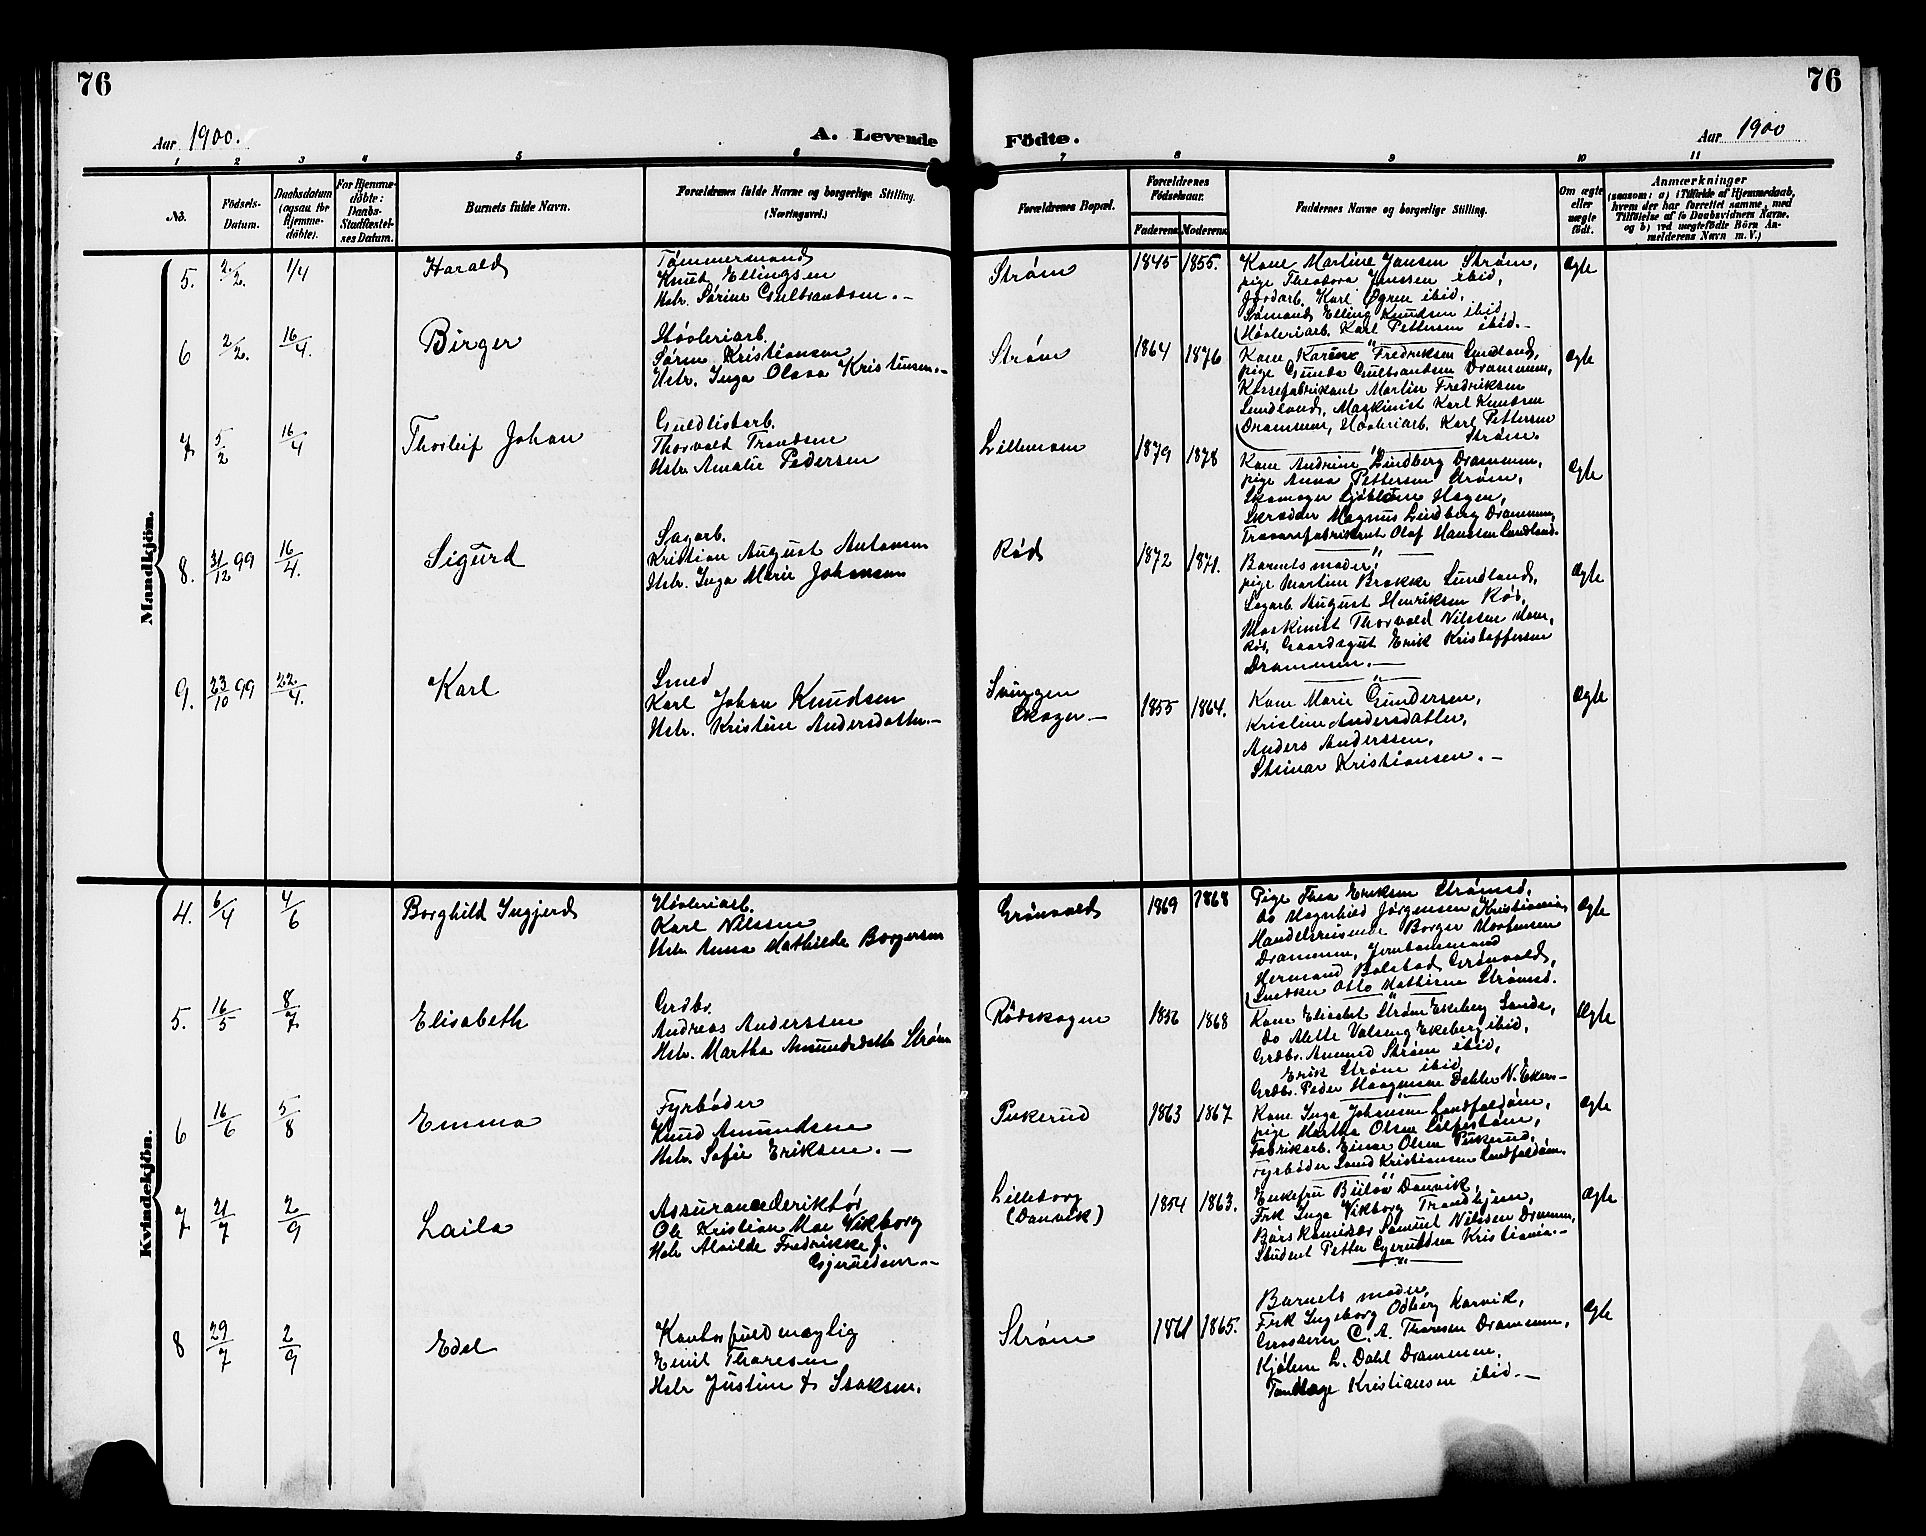 76
76
Aar 1900.
A. Levende
Födte.
Aar 1900
1 2 3 4 5 6 7 8 9 10 11
No.
Födsels-
Datum.
Daabsdatum
(ogsaa for
Hjemme-
döbte).
For Hjemme-
döbte:
Daabs-
Stadfæstel-
ses Datum.
Barnets fulde Navn.
Forældrenes fulde Navne og borgerlige Stilling.
(Næringsvei.)
Forældrenes Bopæl.
Forældrenes
Födselsaar.
Faderens
Moderens
Faddernes Navne og borgerlige Stilling.
Om ægte
eller
uægte
födt.
Anmærkninger
(saasom: a) i Tilfælde af Hjemmedaab,
hvem der har forrettet samme, med
Tilföielse af to Daabsvidners Navne.
og b) ved uægtefödte Börn An-
melderens Navn m. V.)
Mandkjön.
5. 2/2. 1/4 Harald
Tømmermand
Knud Ellingsen
Hstr. Sørine Gulbrandsen.-
Strøm 1845 1855.
Kone Martine Jansen Strøm,
pige Theodora Janssen ibid,
Jordarb. Karl Øgren ibid,
Sømand Elling Knudsen ibid
Høvleriarb. Karl Pettersen ibid.-
Ægte
6 2/2. 16/4. Birger
Høvleriarb.
Søren Kristiansen
Hstr. Inga Olava Kristensen.-
Strøm 1864 1876
Kone Karine Fredriksen Lundland,
pige Gunda Gulbrandsen Drammen,
Korsefabrikant Martin Fredriksen
Lundland, Maskinist Karl Knudsen
Drammen, Høvleriarb. Karl Pettersen
Strøm.
Ægte
7 5/2 16/4 Thorleif Johan
Guldlistarb.
Thorvald Trondsen
Hstr Amalie Pedersen
Lillemoen 1879 1878
Kone Andrine Lindberg Drammen,
pige Anna Pettersen Strøm,
Hagen,
Skrædder Magnus Lindberg Drammen,
Olaf Hansen Lundland.
Ægte
8. 31/12 99 16/4. Sigurd
Sagarb.
Kristian August Antonsen
Hstr. Inga Marie Johansen
Rød 1872 1871.
Barnets moder,
pige Martine Brakke Lundland,
Sagarb. August Henriksen Rød,
Maskinist Thorvald Nilsen
Rød, Gaardsgut Erik Kristoffersen
Drammen.-
Ægte
9. 23/10 99 22/4. Karl
Smed
Karl Johan Knudsen
Hstr. Kristine Andersdatter.-
Svingen
Skoger- 1855 1864.
Kone Marie Gundersen,
Kristine Andersdatter,
Anders Anderssen,
Steinar Kristiansen.-
Ægte
Kvindekjön.
4. 6/4 4/6 Borghild Ingjerd
Høvleriarb.
Karl Nilssen
Hstr Anna Mathilde Borgersen
Grønvold 1869 1868
Pige Thea Eriksen Strømsd.
do Magnhild Jørgensen Kristiania,
Handelsreisende Borger Mortensen
Drammen, Jernbanemand
Hermand Bolstad Grønvold,
Snedker Otto Mathisen Strømsd.
Ægte
5. 16/5 8/7 Elisabeth
Grdbr.
Andreas Anderssen
Hstr. Martha Amundsdatter Strøm
Rødskogen 1856 1868
Kone Elisabet Strøm Ekeberg Sande,
do Alette Valseng Ekeberg ibid,
Grdbr. Amund Strøm ibid,
Erik Strøm ibid,
Grdbr. Peder Haagensen Dahler N. Eker.-
Ægte
6 16/6 5/8 Emma
Fyrbøder
Knud Amundsen
Hstr. Sofie Eriksen.-
Pukerud 1863 1867
Kone Inga Johansen Landfaldøen,
pige Martha Olsen
Fabrikarb. Einar Olsen Pukerud,
Fyrbøder Kristiansen Landfaldøen.
Ægte
7 21/7 2/9 Laila
Assurancederiktør
Ole Kristian Moe Vikborg
Hstr Alvilde Fredrikke f.
Gjeruldsen.-
Lilleborg
(Danvik) 1854 1863.
Enkefru Bülov Danvik,
Frk Inga Vikborg Trondhjem,
Samuel Nilssen Drammen,
Student Petter Gjeruldsen Kristiania.-
Ægte
8 29/7 2/9 Edel
Kontorfuldmægtig
Emil Thoresen
Hstr Justine f. Isaksen.
Strøm 1861 1865.
Barnets moder,
Frk Ingeborg Odberg Larvik,
Grosserer C. A. Thoresen Drammen,
L. Dahl Drammen,
Tandlæge Kristiansen ibid.-
Ægte